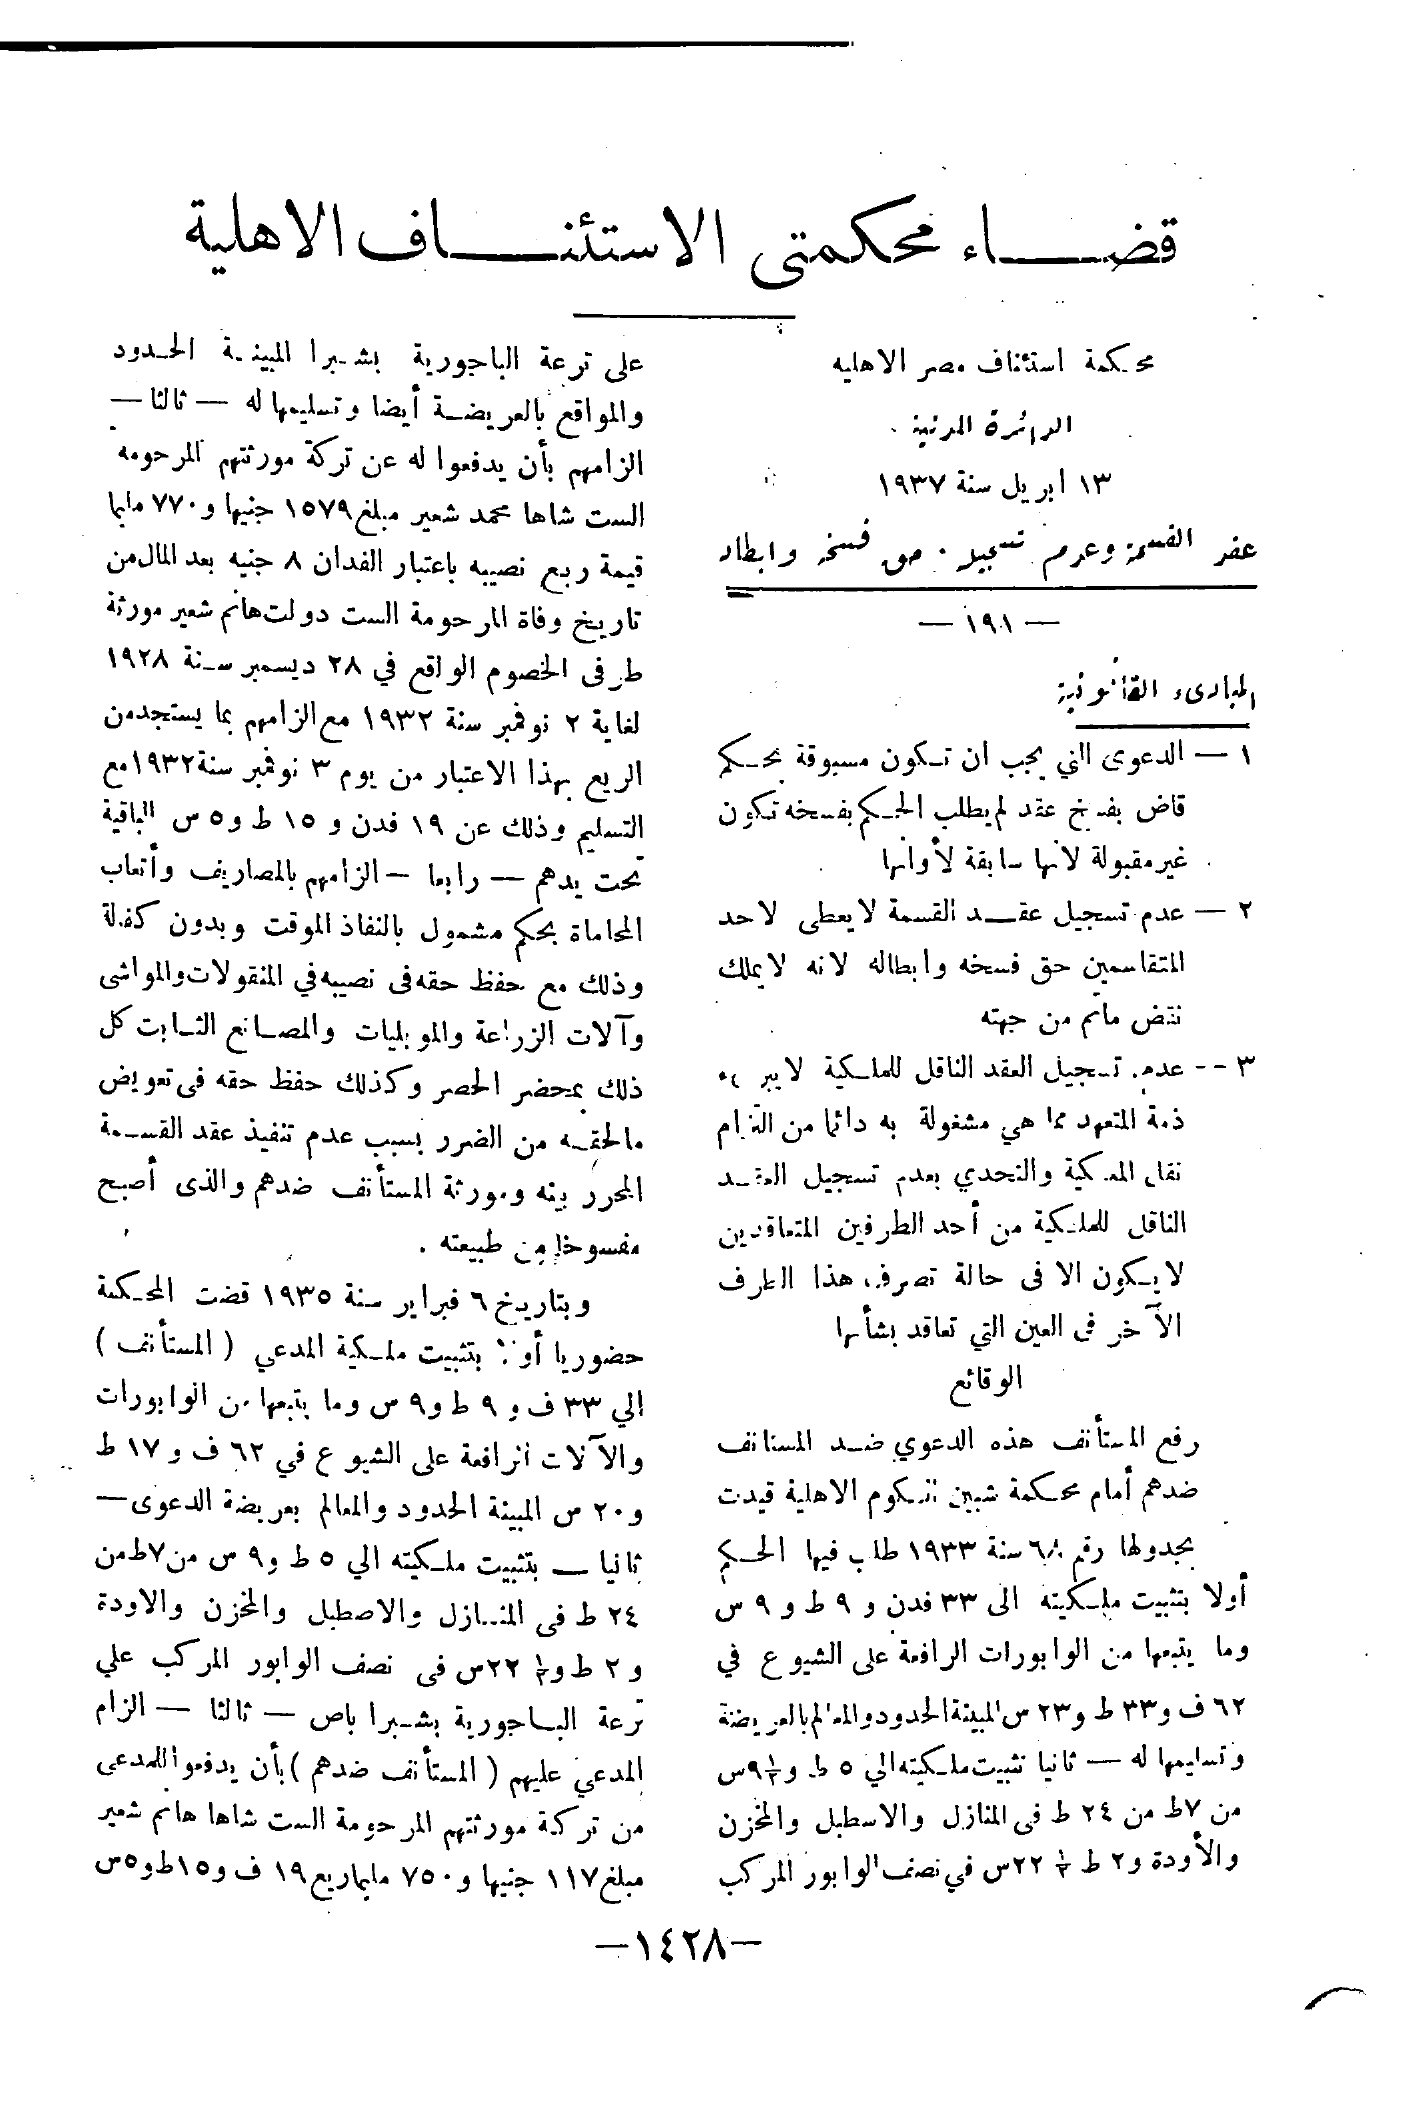 قضاء محكمتى الاستئناف الاهلية
محكمة استئناف مصر الاهليه
الدائرة المدنية
١٣ ابريل سنة ١٩٣٧
عقد القسمة وعدم تسجيل . حق فسخه وابطاله
— ١٩١ —
المبادىء القانونية
١ — الدعوى التي يجب ان تكون مسبوقة بحكم
قاض بفسخ عقد لم يطلب الحكم بفسخه تكون
غير مقبولة لانها سابقة لأوانها
٢ — عدم تسجيل عقد القسمة لا يعطى لاحد
المتقاسمين حق فسخه وابطاله لانه لا يملك
نقض ماتم من جهته
٣ -- عدم تسجيل العقد الناقل للملكية لا يبرىء
ذمة المتعهد مما هي مشغولة به دائما من التزام
نقل الملكية والتحدي بعدم تسجيل العقد
الناقل للملكية من أحد الطرفين المتعاقدين
لا يكون الا فى حالة تصرف هذا الطرف
الآخر فى العين التي تعاقد بشأنها
الوقائع
رفع المستأنف هذه الدعوي ضد المستانف
ضدهم أمام محكمة شبين الكوم الاهلية قيدت
بجدولها رقم ٦٨ سنة ١٩٣٣ طلب فيها الحكم
أولا بتثبيت ملكيته الى ٣٣ فدن و ٩ ط و ٩ س
وما يتبعها من الوابورات الرافعة على الشيوع في
٦٢ ف و٣٣ ط و٢٣ س المبينة الحدود والمعالم بالعريضة
وتسليمها له — ثانيا تثبيت ملكيته الي ٥ ط و ٩س
من ٧ط من ٢٤ ط فى المنازل والاسطبل والمخزن
والأودة و٢ ط ٢٢س في نصف الوابور المركب
على ترعة الباجورية بشبرا المبينة الحدود
والمواقع بالعريضة أيضا وتسليمها له — ثالثا —
الزامهم بأن يدفعوا له عن تركة مورثتهم المرحومه
الست شاها محمد شعير مبلغ ١٥٧٩ جنيها و٧٧٠ مليما
قيمة ريع نصيبه باعتبار الفدان ٨ جنيه بعد المال من
تاريخ وفاة المرحومة الست دولت هانم شعير مورثة
طرفى الخصوم الواقع في ٢٨ ديسمبر سنة ١٩٢٨
لغاية ٢ نوفمبر سنة ١٩٣٢ مع الزامهم بما يستجد من
الريع بهذا الاعتبار من يوم ٣ نوفمبر سنة ١٩٣٢ مع
التسليم وذلك عن ١٩ فدن و ١٥ ط و٥ س الباقية
تحت يدهم — رابعا — الزامهم بالمصاريف وأتعاب
المحاماة بحكم مشمول بالنفاذ الموقت وبدون كفالة
وذلك مع حفظ حقه فى نصيبه في المنقولات والمواشى
وآلات الزراعة والموبليات والمصانع الثابت كل
ذلك بمحضر الحصر وكذلك حفظ حقه فى تعويض
مالحقه من الضرر بسبب عدم تنفيذ عقد القسمة
المحرر بينه ومورثة المستأنف ضدهم والذى أصبح
مفسوخا من طبيعته .
وبتاريخ ٦ فبراير سنة ١٩٣٥ قضت المحكمة
حضوريا أولا بتثبيت ملكية المدعي ( المستأنف )
الي ٣٣ ف و ٩ ط و٩ س وما يتبعها من الوابورات
والآلات الرافعة على الشيوع في ٦٢ ف و ١٧ ط
و٢٠ س المبينة الحدود والمعالم بعريضة الدعوى —
ثانيا — بتثبيت ملكيته الي ٥ ط و٩ س من ٧ط من
٢٤ ط فى المنازل والاصطبل والمخزن والاودة
و٢ ط و ٢٢س فى نصف الوابور المركب علي
ترعة الباجورية بشبرا باص — ثالثا — الزام
المدعي عليهم ( المستأنف ضدهم ) بأن يدفعوا للمدعى
من تركة مورثتهم المرحومة الست شاها هانم شعير
مبلغ ١١٧ جنيها و٧٥٠ مليما ريع ١٩ ف و١٥ط و٥س
—١٤٢٨—